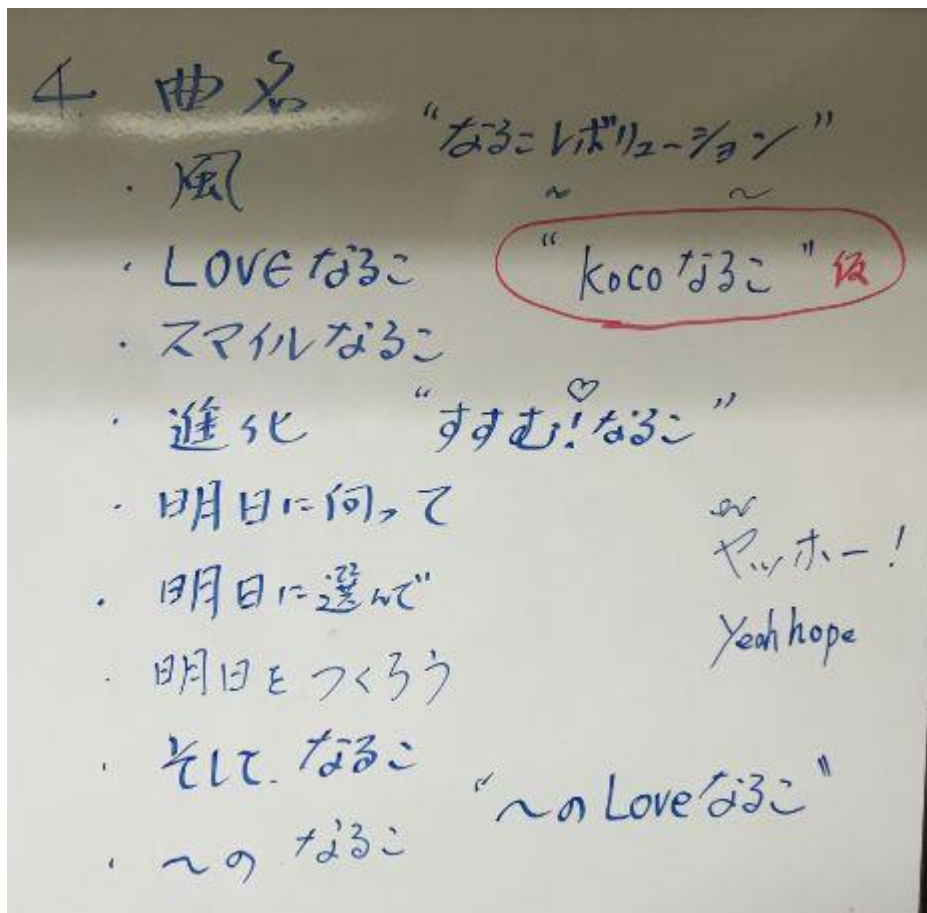 4. 曲名
・風
・LOVEなるこ
・スマイルなるこ
・進化
・明日に向って
・明日に選んで
・明日をつくろう
・そして、なるこ
・〜の なるこ
"なるこレボリューション"
〜 〜
"kocoなるこ" 仮
"すすむ!♡なるこ"
or
ヤッホー!
Yeah hope
"〜のLoveなるこ"